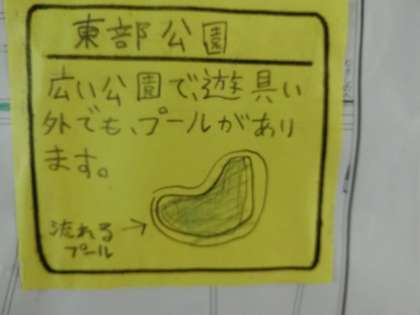 東部公園
広い公園で、遊具い
外でも、プールがあり
ます。
流れる
プール